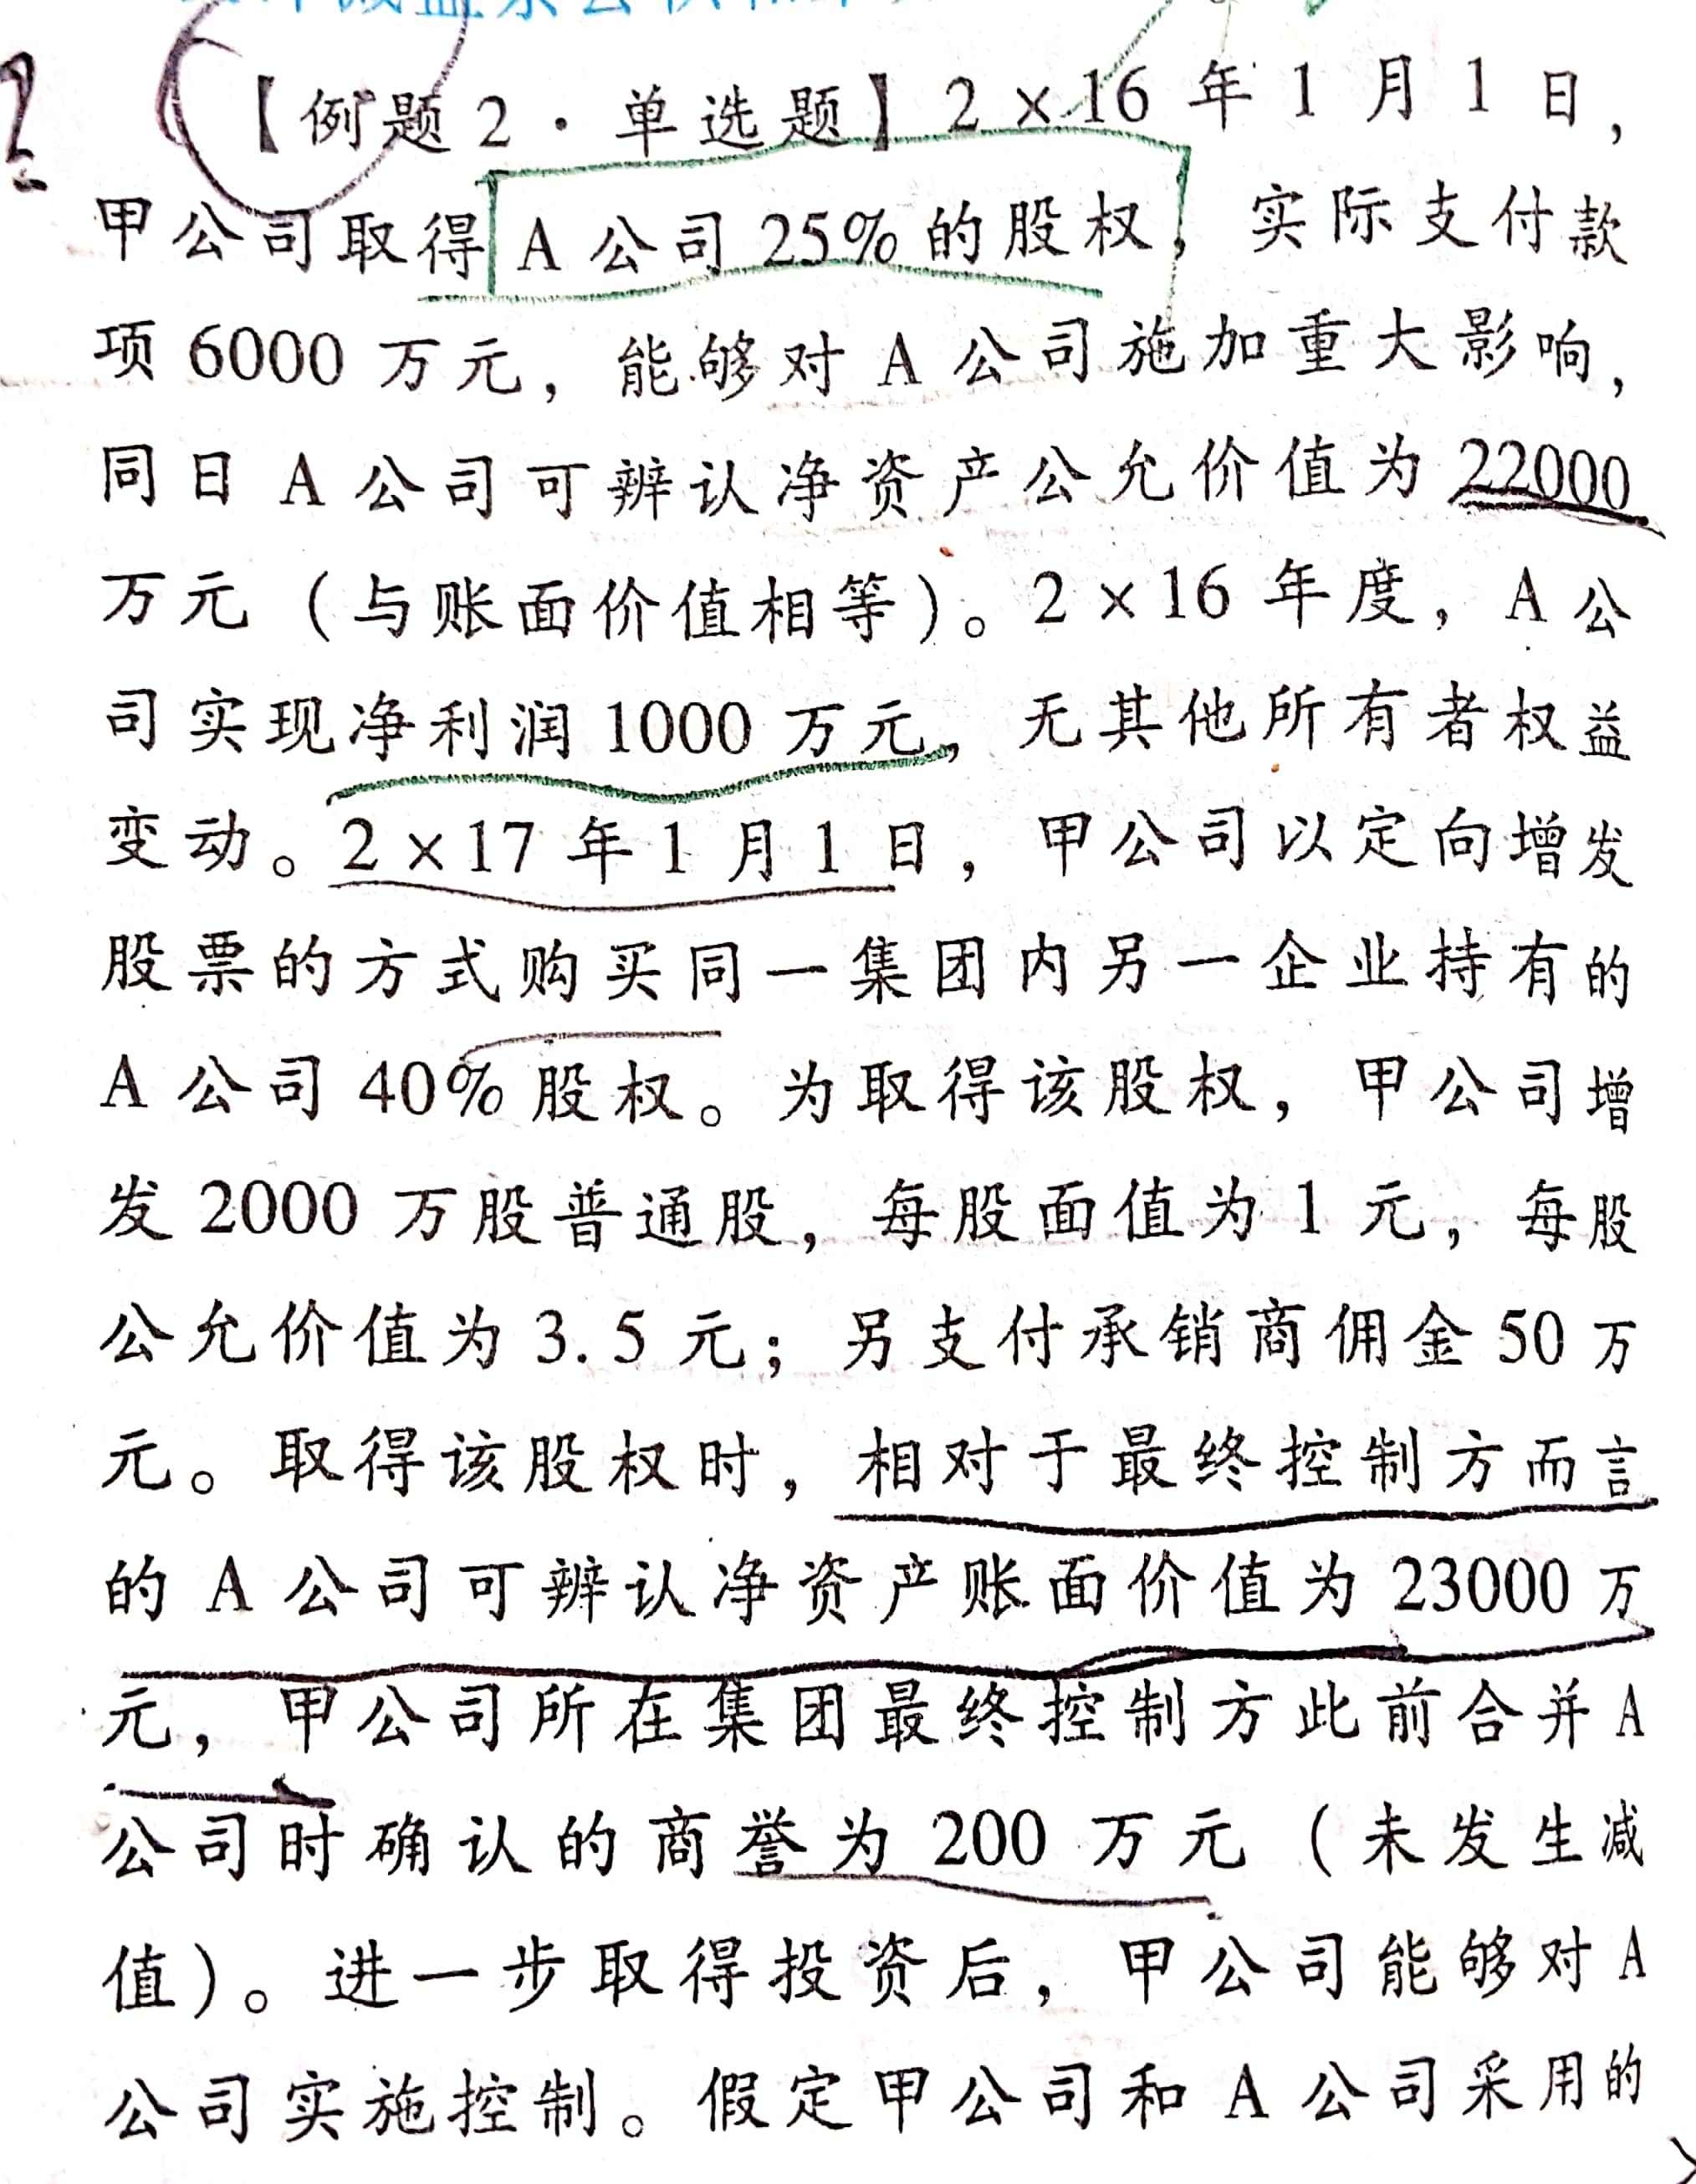 【例题2·单选题】2×16年1月1日，
甲公司取得A公司25%的股权，实际支付款
项6000万元，能够对A公司施加重大影响，
同日A公司可辨认净资产公允价值为22000
万元（与账面价值相等）。2×16年度，A公
司实现净利润1000万元，无其他所有者权益
变动。2×17年1月1日，甲公司以定向增发
股票的方式购买同一集团内另一企业持有的
A公司40%股权。为取得该股权，甲公司增
发2000万股普通股，每股面值为1元，每股
公允价值为3.5元；另支付承销商佣金50万
元。取得该股权时，相对于最终控制方而言
的A公司可辨认净资产账面价值为23000万
元，甲公司所在集团最终控制方此前合并A
公司时确认的商誉为200万元（未发生减
值）。进一步取得投资后，甲公司能够对A
公司实施控制。假定甲公司和A公司采用的